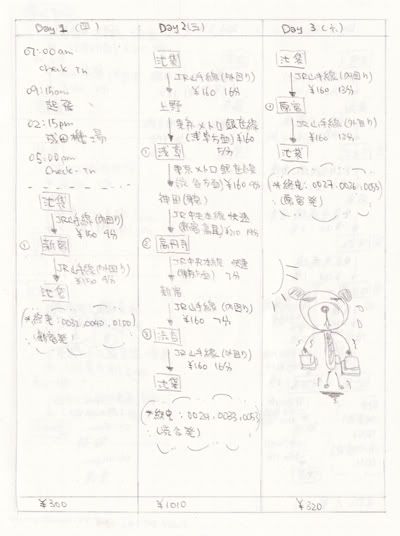 Day 1 (四)
07:00am
check In
09:15am
起飛
02:15pm
成田機場
05:00am
Check-In
池袋
JR山手線(内回り)
¥150 9分
① 新宿
JR山手線(外回り)
¥150 9分
池袋
(*終電: 0032, 0043, 0100)
(新宿発)
¥300
Day 2(五)
池袋
JR山手線(外回り)
¥160 16分
上野
東京メトロ 銀座線
(浅草方面) ¥160
5分
① 浅草
東京メトロ 銀座線
(渋谷方面) ¥160
神田
JR中央本線 快速
② 高円寺
JR中央本線 快速
7分
新宿
JR山手線(内回り)
¥160 7分
③ 渋谷
JR山手線(外回り)
¥160 16分
池袋
(*終電: 0024, 0033, 0053)
(渋谷発)
¥1010
Day 3 (六)
池袋
JR山手線(内回り)
¥160 13分
① 原宿
JR山手線(外回り)
¥160 13分
池袋
(*終電: 0027, 0036, 0055)
(原宿発)
¥320